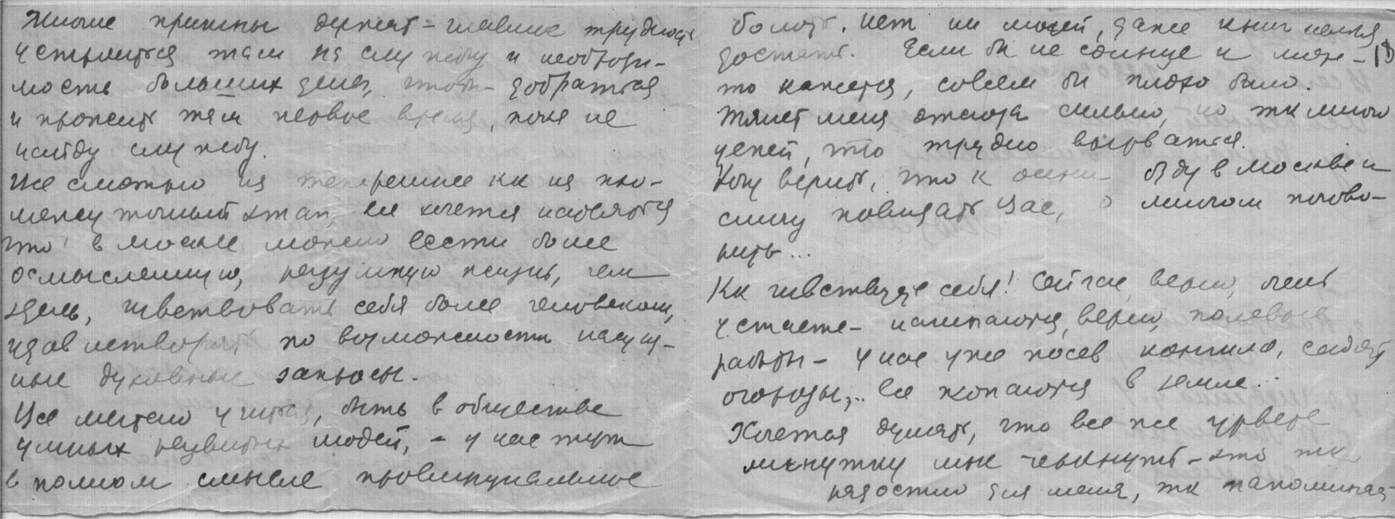 Многие причины держат – главное трудность
устроиться там на службу и необходи-
мость больших денег, чтоб добраться
и прожить там первое время, пока не
найду службу.
Все смотрю на теперешнее как на про-
межуточный этап, все хочется надеяться
что в Москве можно вести более
осмысленную, разумную жизнь, чем
здесь, чувствовать себя более человеком,
удовлетворять по возможности насущ-
ные духовные запросы.
Все мечтаю учиться, быть в обществе
умных развитых людей, – у нас тут
в полном смысле провинциальное
болото. Нет ни людей, даже книг нельзя
достать. Если бы не солнце и море –
то кажется, совсем бы плохо было.
Тянет меня отсюда сильно, но так много
цепей, что трудно вырваться.
Хочу верить, что к осени буду в Москве и
смогу повидать Вас, о многом погово-
рить...
Как чувствуете себя! Сейчас, верно, очень
устаете – начинаются, верно, полевые
работы – у нас уже посев кончили, садят
огороды,.. все копаются в земле...
Хочется думать, что все же урвете
минутку мне черкнуть – это так
радостно для меня, так напоминает